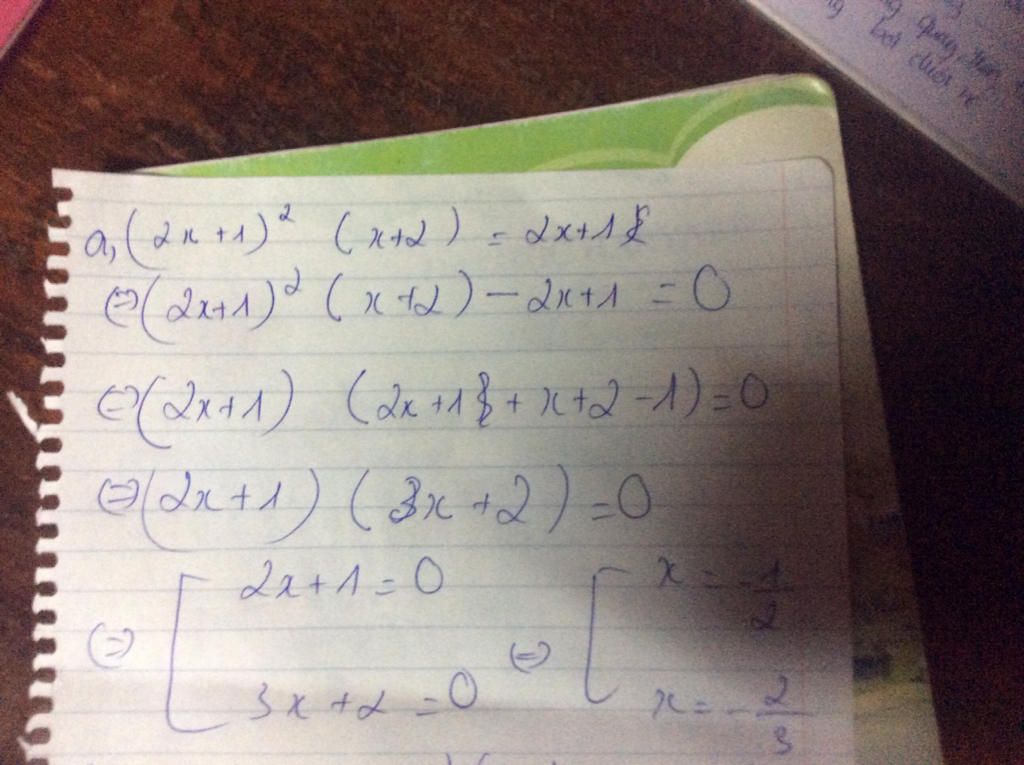 a, (2x+1)² (x+2) = 2x+1
⇔ (2x+1)² (x+2) - 2x+1 = 0
⇔ (2x+1) (2x+1 + x+2-1) = 0
⇔ (2x+1) (3x+2) = 0
⇔ [ 2x+1=0 ⇔ [ x = -1/2
3x+2=0 x = -2/3
quang
bởi